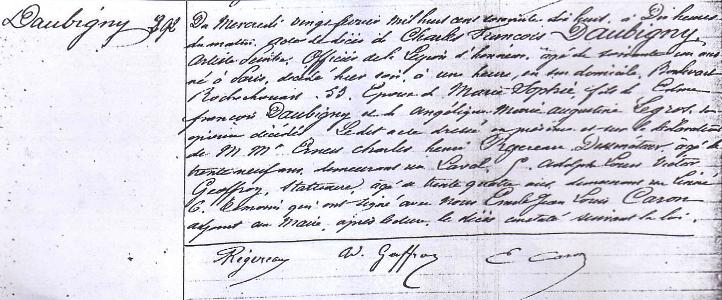 Daubigny 392
Du Mercredi vingt février mil huit cent soixante dix huit, à Dix heures
du matin, acte de décès de Charles François Daubigny
Artiste Peintre, Officier de la Légion d'honneur, âgé de soixante un ans
né à Paris, décédé hier soir, à une heure, en son domicile, Boulevart
Rochechouart, 59. Epoux de Marie Sophie fils de
françois Daubigny et de Angélique Marie augustine Legros, son
épouse décédés. Le dit acte dressé en présence et sur la déclaration
de M Mrs Ernest charles henri Rigereau Dessinateur, âgé de
trente neuf ans, demeurant rue Laval, 5. Adolphe Louis Victor
Geoffroy, Statuaire, âgé de trente quatre ans, demeurant rue
6. Témoins qui ont signé avec Nous Emile Jean Louis Caron
adjoint au Maire, après lecture, le décès constaté suivant la loi.
Rigereau A. V. Geoffroy E Caron